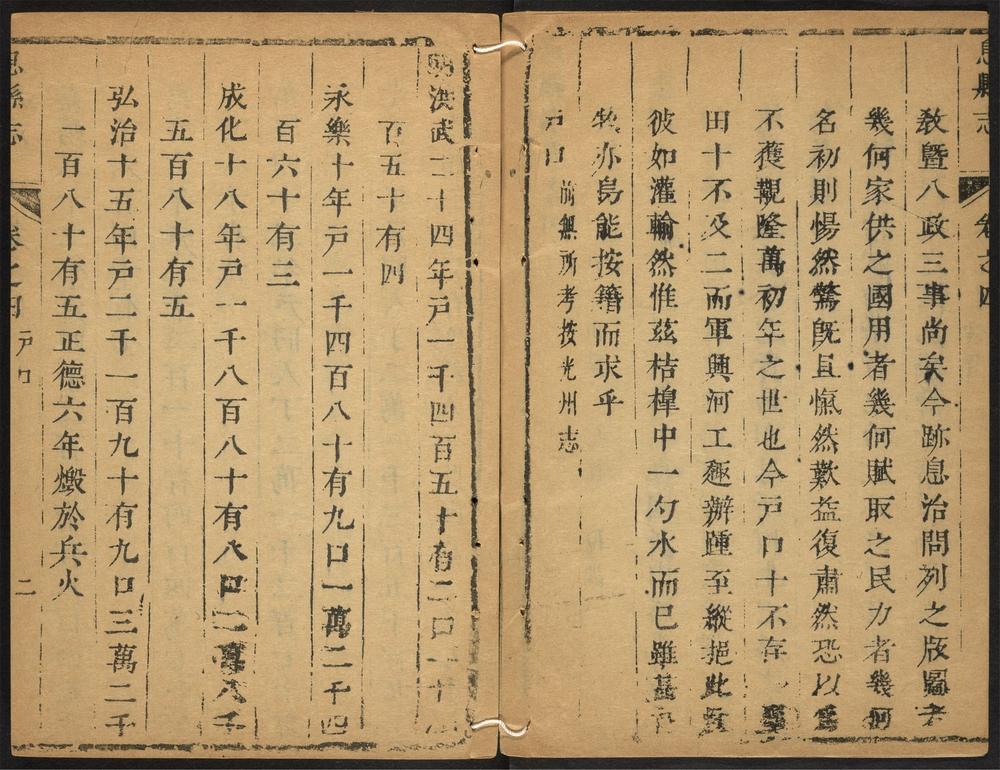 息縣志 卷之四
教暨八政三事尚矣今跡息治問列之版圖者
幾何家供之國用者幾何賦取之民力者幾何
名初則惕然驚既且愾然歎益復肅然恐以為
不獲觀隆萬初年之世也今戸口十不存
田十不及二而軍興河工趣辦踵至縱挹此
彼如灌輸然惟玆桔槹中一勺水而已雖甚
亦烏能按籍而求乎
戸口 前無所考按光州志
明洪武二十四年戸一千四百五十有二口一十
百五十有四
永樂十年戸一千四百八十有九口一萬二千四
百六十有三
成化十八年戸一千八百八十有八口二萬八千
五百八十有五
弘治十五年戸二千一百九十有九口三萬二千
一百八十有五正德六年燬於兵火
息縣志 卷之四 戸口 二